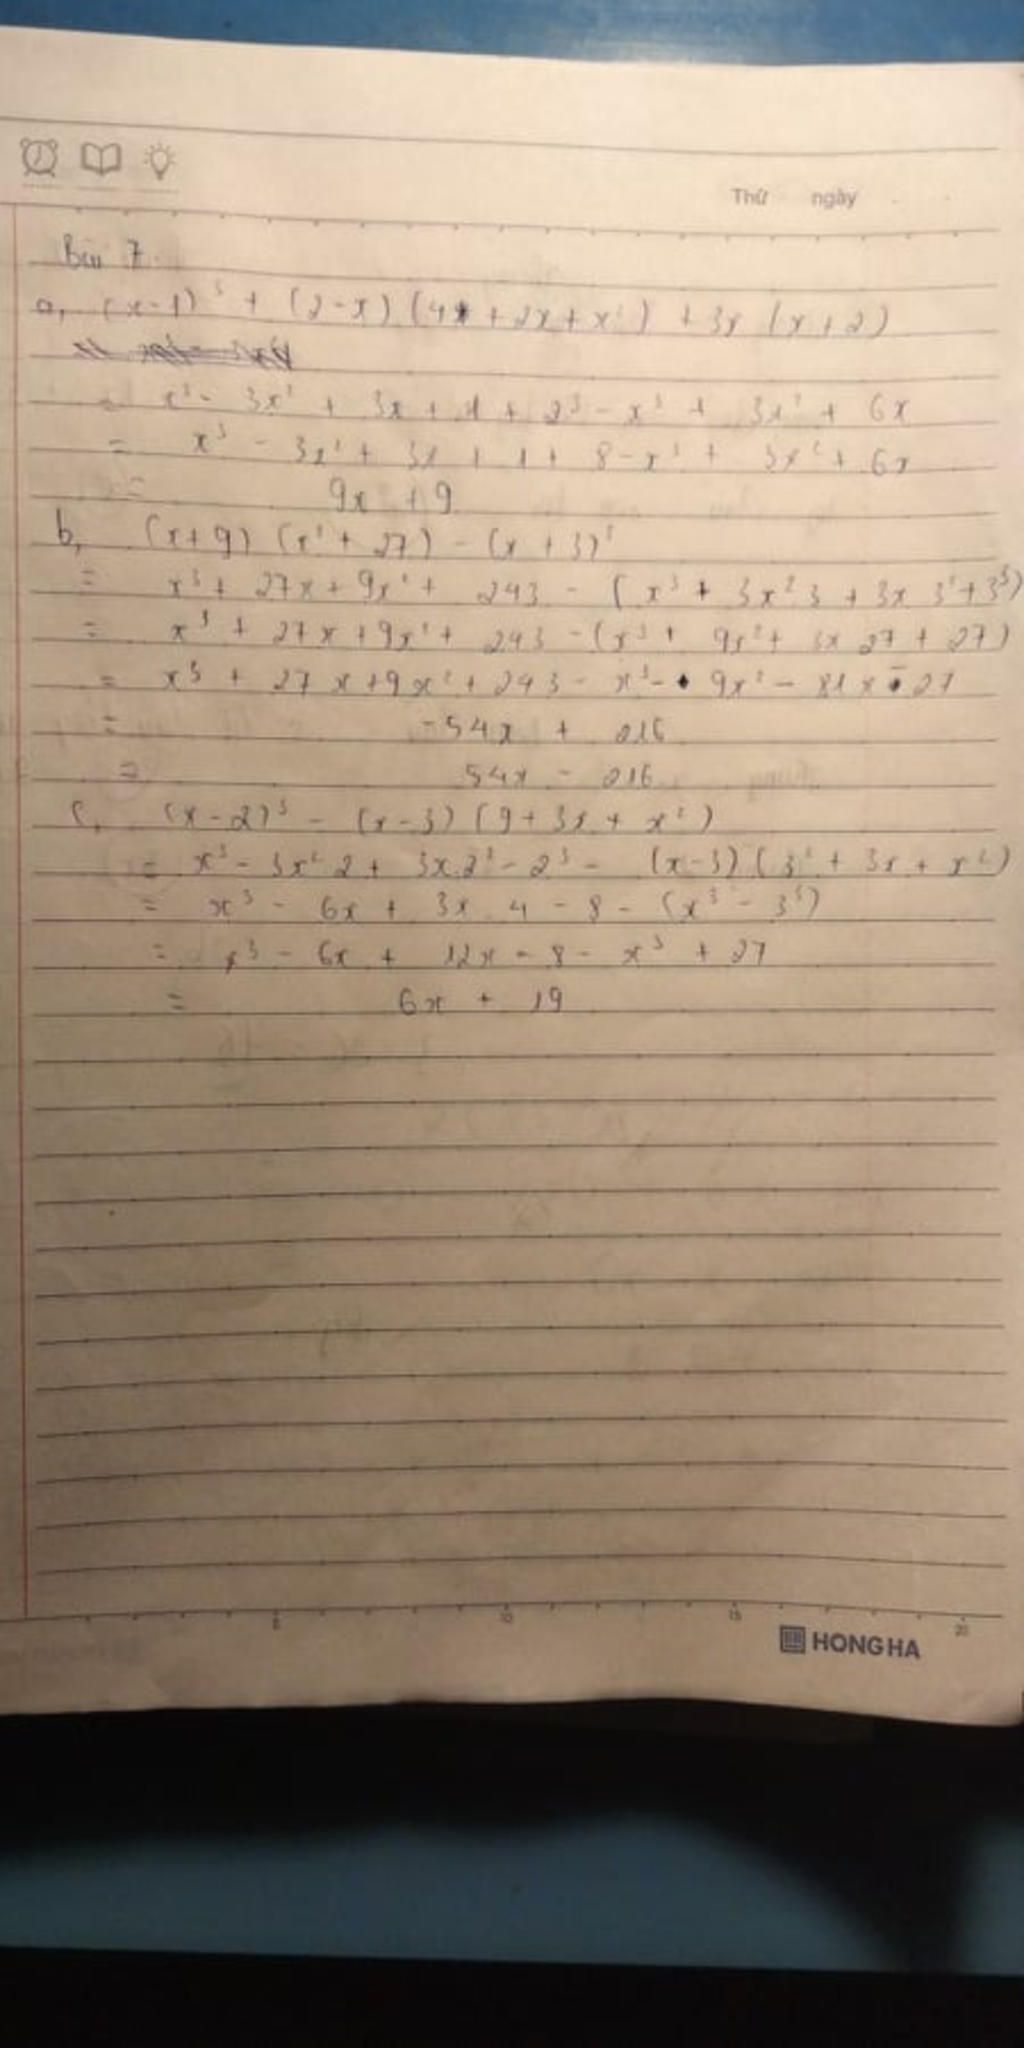 Thứ ngày
Bài 7.
a, (x-1)³ + (2-x)(4 + 2x + x²) + 3x (x+2)
= x³ - 3x² + 3x + 1 + 2³ - x³ + 3x² + 6x
= x³ - 3x² + 3x + 1 + 8 - x³ + 3x² + 6x
= 9x + 9
b, (x+9) (x² + 27) - (x + 3)³
= x³ + 27x + 9x² + 243 - (x³ + 3x²3 + 3x 3² + 3³)
= x³ + 27x + 9x² + 243 - (x³ + 9x² + 3x 27 + 27)
= x³ + 27x + 9x² + 243 - x³ - 9x² - 81x - 27
= -54x + 216
= 54x - 216
c, (x-2)³ - (x-3) (9 + 3x + x²)
= x³ - 3x² 2 + 3x.2² - 2³ - (x-3) (3² + 3x + x²)
= x³ - 6x + 3x 4 - 8 - (x³ - 3³)
= x³ - 6x + 12x - 8 - x³ + 27
= 6x + 19
5 10 15 20
HONG HA